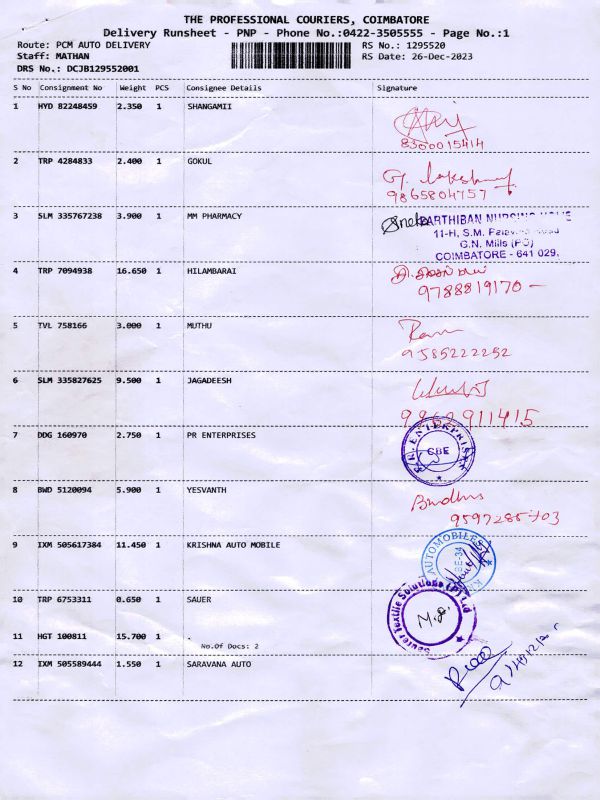 THE PROFESSIONAL COURIERS, COIMBATORE
Delivery Runsheet - PNP - Phone No.:0422-3505555 - Page No.:1
Route: PCM AUTO DELIVERY RS No.: 1295520
Staff: MATHAN RS Date: 26-Dec-2023
DRS No.: DCJB129552001
S No Consignment No Weight PCS Consignee Details Signature
1 HYD 82248459 2.350 1 SHANGAMII
8300015414
2 TRP 4284833 2.400 1 GOKUL
9865804757
3 SLM 335767238 3.900 1 MM PHARMACY
PARTHIBAN NURSING HOME
11-H, S.M.
G.N. Mills (PO)
COIMBATORE - 641 029.
4 TRP 7094938 16.650 1 HILAMBARAI
9788819170
5 TVL 758166 3.000 1 MUTHU
9585222252
6 SLM 335827625 9.500 1 JAGADEESH
7 DDG 160970 2.750 1 PR ENTERPRISES
ENTERPRISES
CBE
8 BWD 5120094 5.900 1 YESVANTH
9 IXM 505617384 11.450 1 KRISHNA AUTO MOBILE
AUTOMOBILES
10 TRP 6753311 0.650 1 SAUER
Sauer Textile Solutions (P) Ltd
11 HGT 100811 15.700 1 .
No.Of Docs: 2
12 IXM 505589444 1.550 1 SARAVANA AUTO